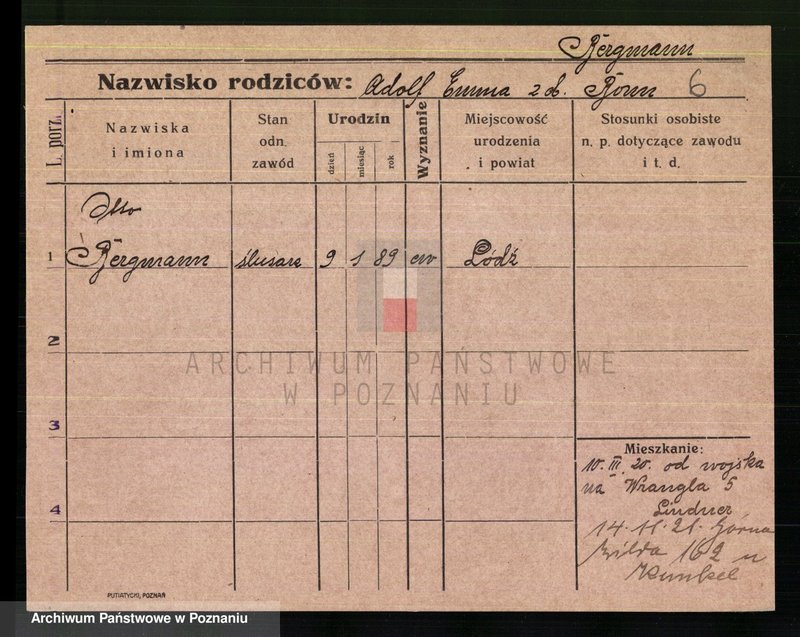 Bergmann
Nazwisko rodziców: Adolf Emma z d. Born 6
L. porz.
Nazwiska
i imiona
Stan
odn.
zawód
Urodzin
dzień
miesiąc
rok
Wyznanie
Miejscowość
urodzenia
i powiat
Stosunki osobiste
n. p. dotyczące zawodu
i t. d.
Otto
1 Bergmann ślusarz 9 1 89 ew Łódź
2
ARCHIWUM PAŃSTWOWE
W POZNANIU
3
Mieszkanie:
10. III. 20. od wojska
na Wrangla 5
Lindner
4
14. 11. 21. Górna
Wilda 162 u
Kunkel
PUTIATYCKI, POZNAŃ
Archiwum Państwowe w Poznaniu